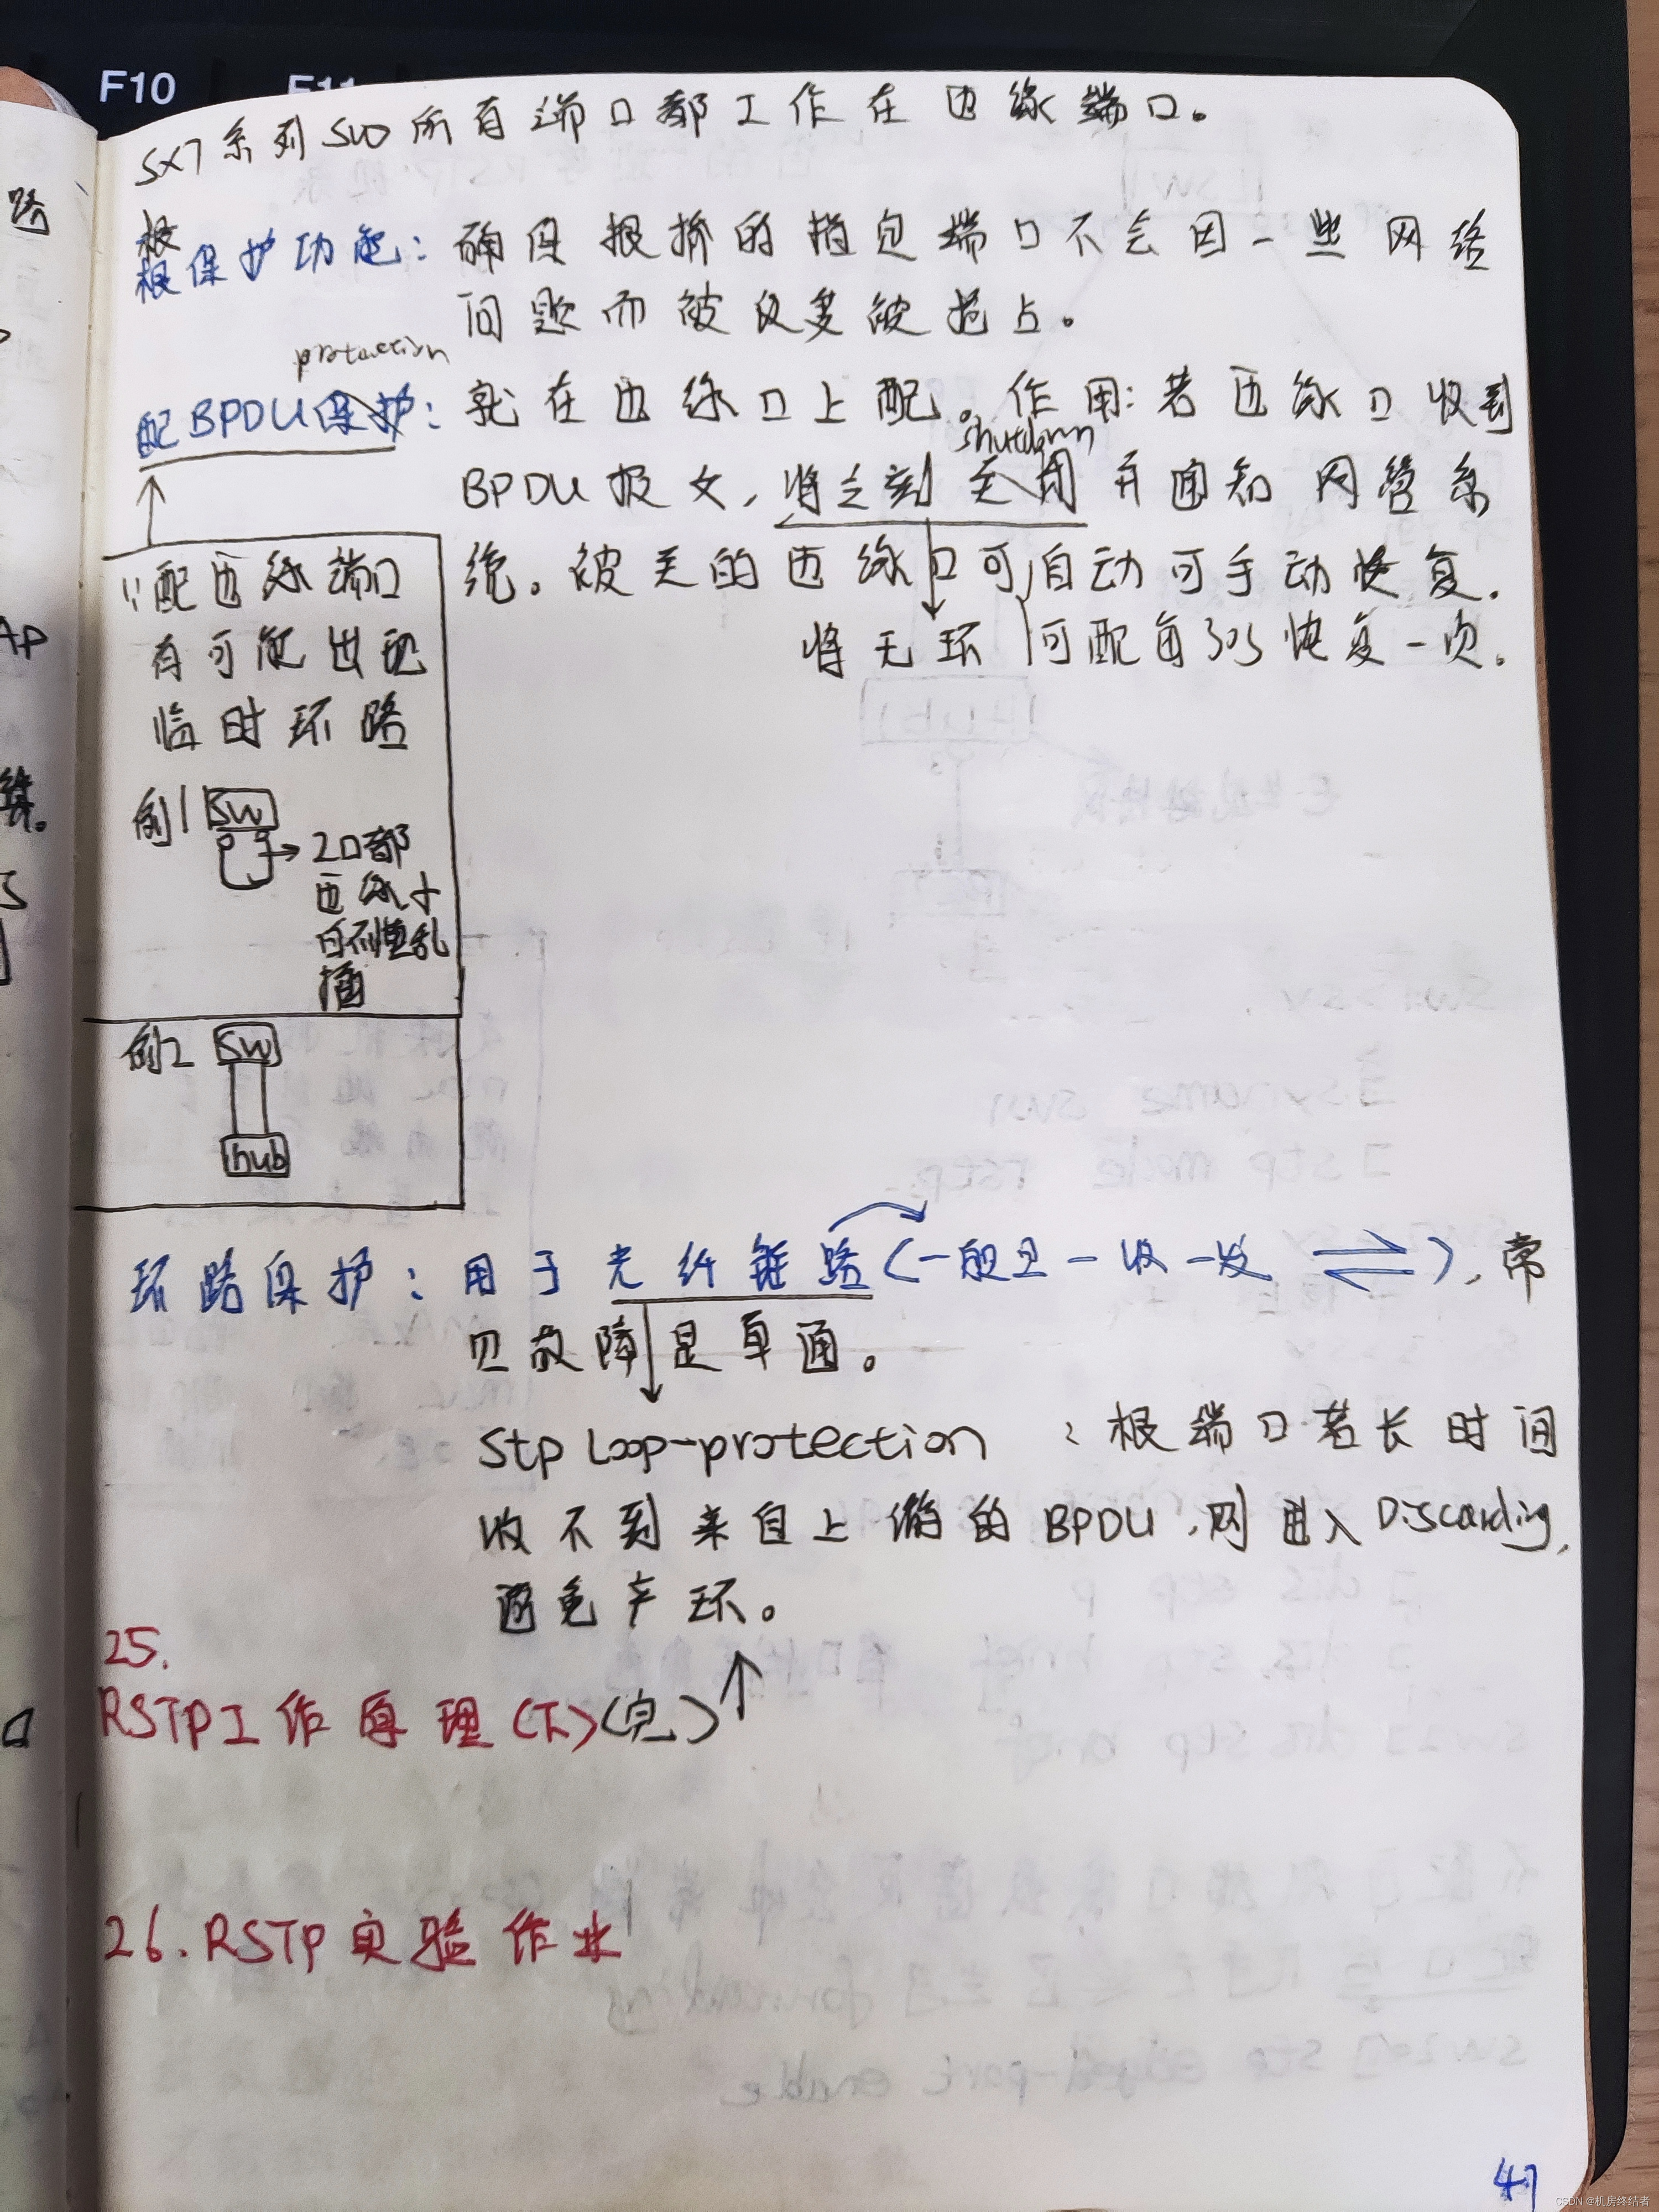 F10 F11
SX7系列SW所有端口都工作在边缘端口。
根
根保护功能：确保根桥的指定端口不会因一些网络
问题而被反复被抢占。
protection
配BPDU保护：就在边缘口上配。作用：若边缘口收到
shutdown
BPDU报文，将立刻关闭并通知网管系
统。被关的边缘口可自动可手动恢复.
将无环 可配每30s恢复一次。
∵配边缘端口
有可能出现
临时环路
例1 SW
2口都
边缘小
白不懂乱
插
例2 SW
hub
环路保护：用于光纤链路(一般是一收一发 ),常
见故障是单通。
Stp Loop-protection ：根端口若长时间
收不到来自上游的BPDU,则进入Discarding,
避免产环。
25.
RSTP工作原理(下)(完)
26.RSTP实验作业
路
AP
47
CSDN @机房终结者